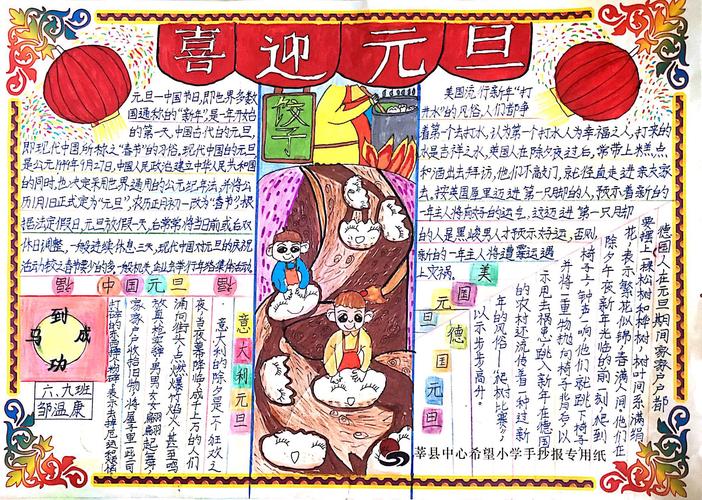 喜迎元旦
元旦一中国节日,即世界多数
国通称的“新年”,是一年开始
的第一天,中国古代的元旦,
即现代中国所称之“春节”的习俗。现代中国的元旦
是公元1949年9月27日,中国人民政治建立中华人民共和国
的同时,也决定采用世界通用的公元纪年法,并将公
历1月1日正式定为“元旦”,农历正月初一改为“春节”,根
据法定假日,元旦放假一天,
休日调整,一般连续休息三天,现代中国对元旦的庆祝
中国元旦
饺子
美国流行新年“打
井水”的风俗,人们都争
着第一个去打水,认为第一个打水人为幸福之人,打来的
水是吉祥之水,英国人在除夕夜过后,常带上糕点
和酒出去拜访,他们不敲门,就径直走进亲友家
去,按英国屋里迈进第一只脚的人,预示着新的
一年主人将
的人是黑
新的一年主人将遭霉运遇
上灾祸。
美国元旦
德国元旦
德国人在元旦期间,家家户户都
要摆上一棵松树和横树,树叶间系满绢
花,表示繁花似锦,香满人间,他们在
除夕午夜新年光临前一刻,爬到
椅子上,钟声一响,他们就跳下椅子
并将一重物抛向椅子背后,以
示甩去祸患,跳入新年,在德国
的农村还流传着一种过新
年的风俗——“爬树比赛”,
以示步步高升。
意大利元旦
意大利的除夕是一个狂欢之
夜,当夜幕降临,成千上万的人们
涌向街头,点燃爆竹焰火,甚至鸣
放真枪实弹,男男女女翩翩起舞
家家户户收拾旧物,将屋子里
马到成功
六、九班
邹温康
莘县中心希望小学手抄报专用纸